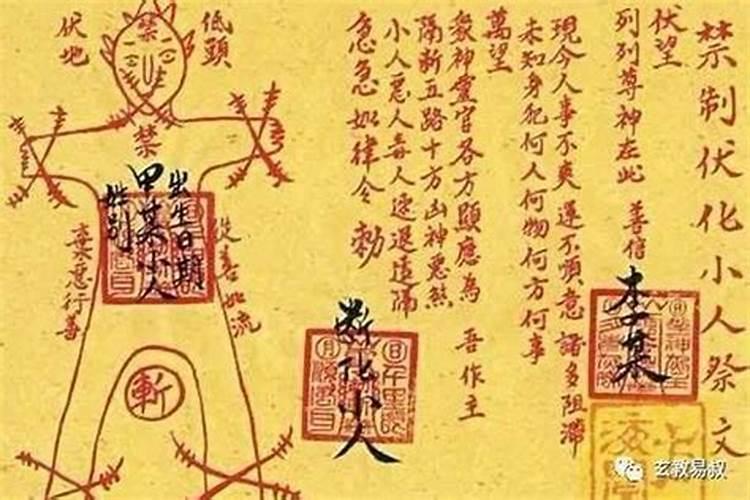 禁制伏化小人祭文
伏望
列列尊神在此 善信 李某
現今人事不爽 運不順意 諸多阻滯
未知身犯何人何物何方何事
萬望
衆神靈官各方顯應為 吾作主
隔斷五路十方凶神惡煞
小人惡人毒人速退遠隔
急急如律令 勅
斷化小人
低頭
禁
伏地
禁
出生日期
甲某小人
姓別
從善如流
棄惡行善
斬
玄教易叔